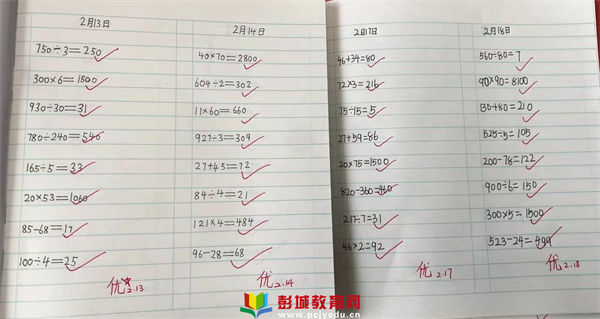 2月13日
750÷3=250
300×6=1800
930÷30=31
780-240=540
165÷5=33
20×53=1060
85-68=17
100÷4=25
优 2.13
2月14日
40×70=2800
604÷2=302
11×60=660
927÷3=309
27+45=72
84÷4=21
121×4=484
96-28=68
优 2.14
2月17日
46+34=80
72×3=216
75÷15=5
27+59=86
20×75=1500
820-360=460
217÷7=31
46×2=92
优 2.17
2月18日
560÷80=7
90×90=8100
130+80=210
525÷5=105
200-78=122
900÷6=150
300×5=1500
523-24=499
优 2.18
彭城教育网
www.pcjyedu.cn